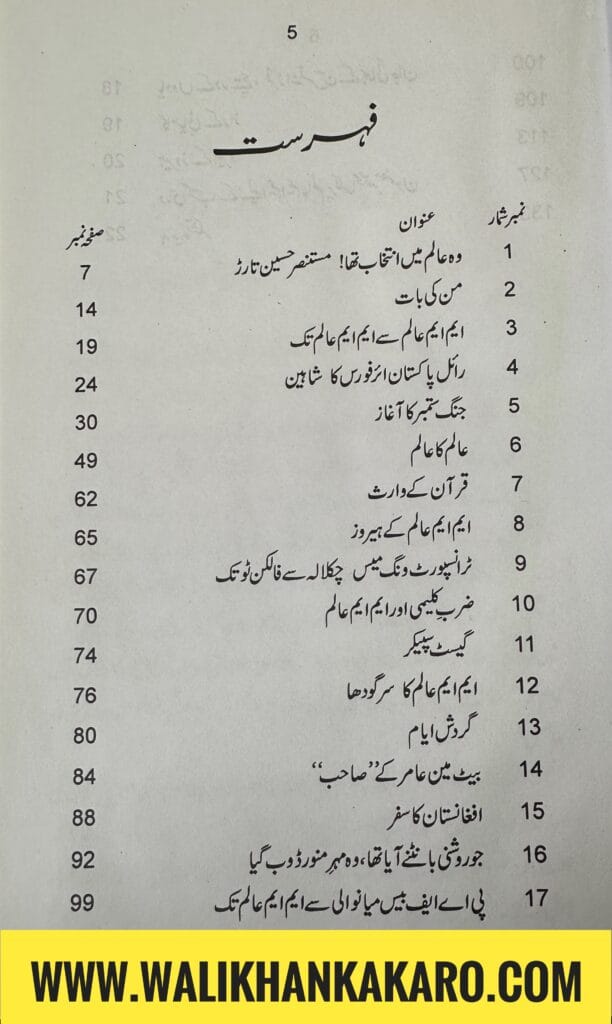 5
فہرست
نمبر شمار عنوان صفحہ نمبر
1 وہ عالم میں انتخاب تھا! مستنصر حسین تارڑ 7
2 من کی بات 14
3 ایم ایم عالم سے ایم ایم عالم تک 19
4 رائل پاکستان ائر فورس کا شاہین 24
5 جنگ ستمبر کا آغاز 30
6 عالم کا عالم 49
7 قرآن کے وارث 62
8 ایم ایم عالم کے ہیروز 65
9 ٹرانسپورٹ ونگ میس چکلالہ سے فالکن ٹو تک 67
10 ضربِ کلیمی اور ایم ایم عالم 70
11 گیسٹ سپیکر 74
12 ایم ایم عالم کا سرگودھا 76
13 گردش ایام 80
14 بیٹ مین عامر کے ”صاحب“ 84
15 افغانستان کا سفر 88
16 جو روشنی بانٹنے آیا تھا، وہ مہرِ منور ڈوب گیا 92
17 پی اے ایف بیس میانوالی سے ایم ایم عالم تک 99
WWW.WALIKHANKAKARO.COM